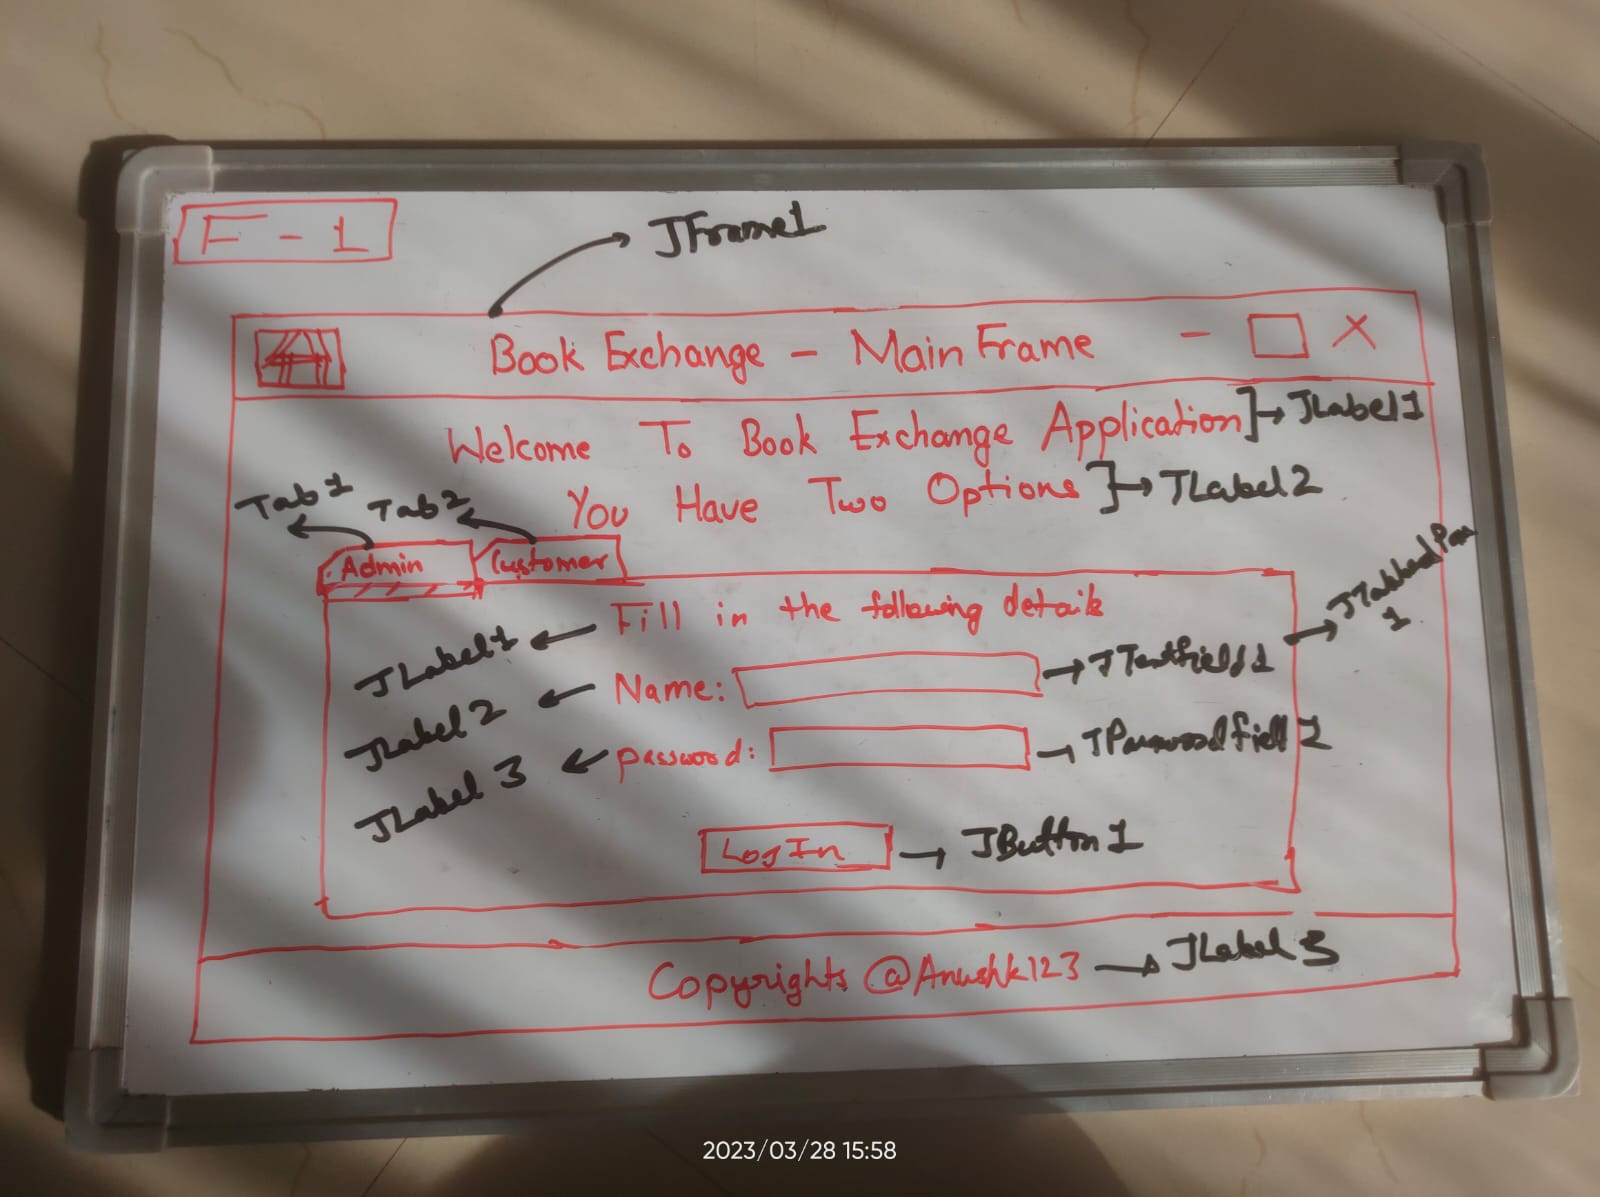 F - 1
JFrame1
Book Exchange - Main Frame - X
Welcome To Book Exchange Application JLabel1
You Have Two Options JLabel2
Tab 1 Tab 2
Admin Customer
Fill in the following details
JLabel1
JTabbedPan 1
Name: JTextfield1
JLabel2
password: JPasswordfield 1
JLabel 3
LogIn JButton1
Copyrights @Anushk123 JLabel 3
2023/03/28 15:58